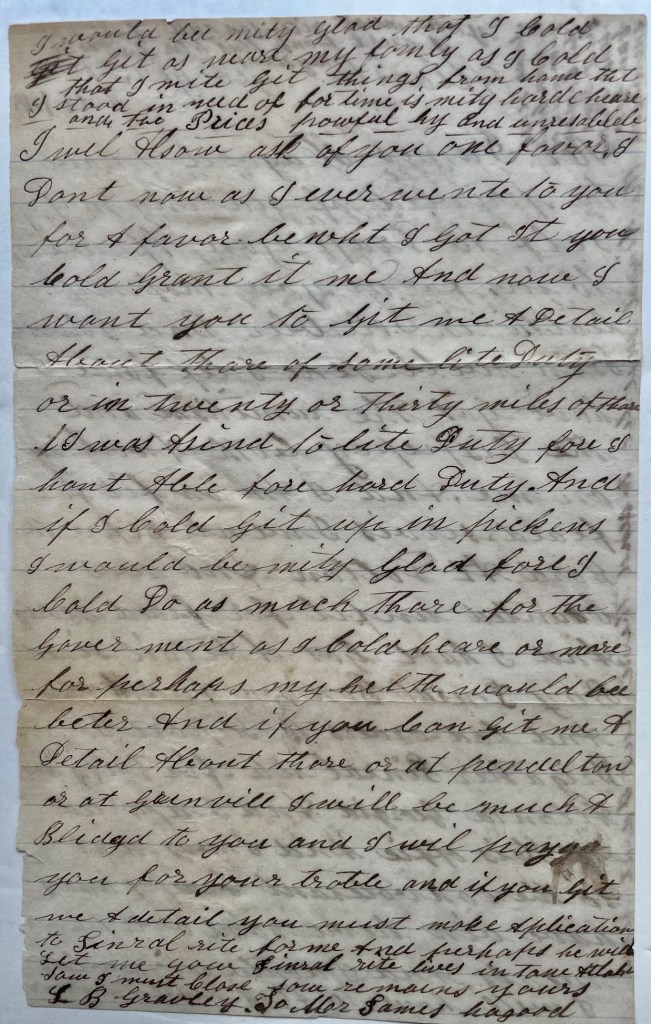 I would bee mity glad that I Cold
git as neare my fomly as I Cold
that I mite Git things from home that
I stood in need of for time is mity hard heare
and the Prices powful hy and unresoble
I wel Alsow ask of you one favor, I
Dont now as I ever wente to you
for A favor be what I Got It you
Cold Grant it me And now I
want you to Git me A Detail
About thare of some lite Duty
or in twenty or thirty miles of thare
I was Asind to lite Duty fore I
hant Able fore hard Duty. And
if I Cold Git up in pickens
I would be mity Glad fore I
Cold Do as much thare for the
Gover ment as I Cold heare or more
for perhaps my helth would bee
beter And if you Can Git me A
Detail About thare or at pendelton
or at Grenvill I will be much A
Blidgd to you and I wil pay
you for your troble and if you Git
me A detail you must make Aplication
to Jinral rite for me And perhaps he will
Let me gow Jinral rite lives in tawn
Sow I must Close sow remains yours
L B Gravley. To Mor James hagood